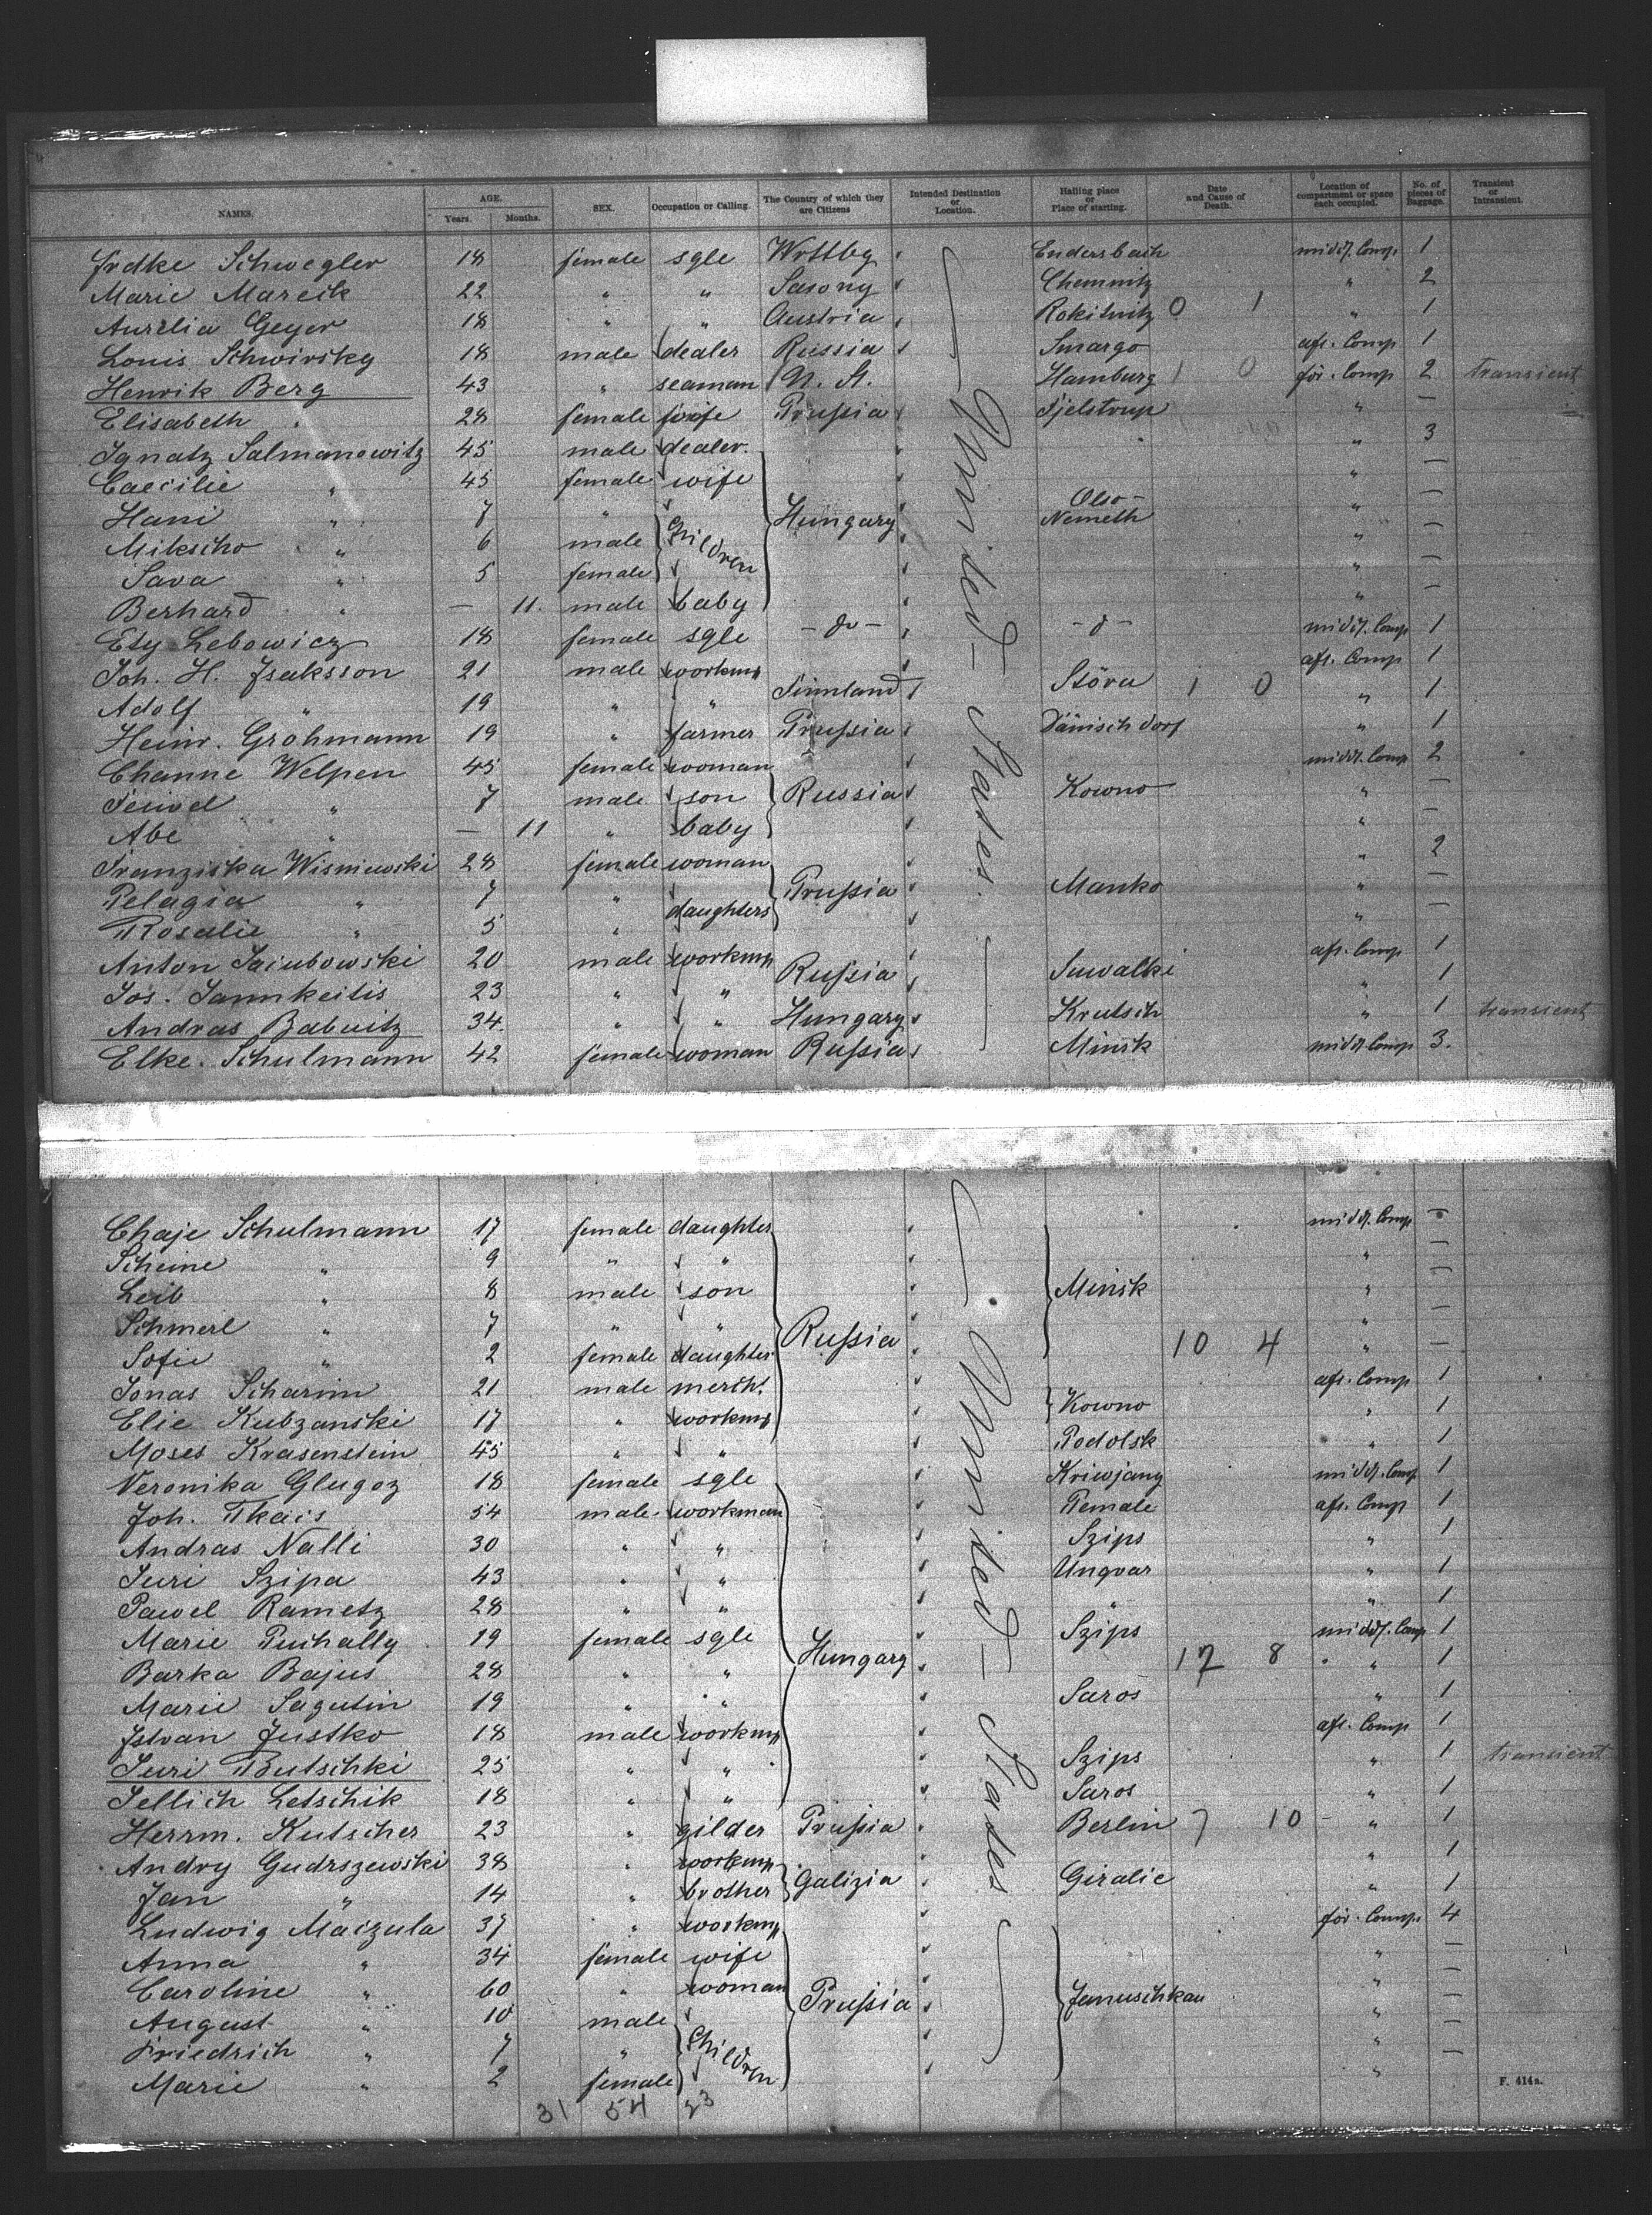 NAMES. AGE. Years. Months. SEX. Occupation or Calling. The Country of which they are Citizens Intended Destination or Location. Hailing place or Place of starting. Date and Cause of Death. Location of compartment or space each occupied. No. of pieces of Baggage. Transient or Intransient.
Frdke Schwegler 18 female sgle Wrttbg Endersbach midd. Comp. 1
Marie Mareik 22 " " Saxony Chemnitz " 2
Aurelia Geyer 18 " " Austria Rokitnitz 0 1 " 1
Louis Schwirsky 18 male dealer Russia Smargo aft. Comp 1
Henrik Berg 43 " seaman N. A. Hamburg 1 0 for. Comp 2 transient
Elisabeth " 28 female wife Prußia Fjelstrup " —
Ignatz Salmanowitz 45 male dealer. " 3
Caecilie " 45 female wife " —
Hani " 7 " Children Hungary Olso-Nemeth " —
Mikscho " 6 male " —
Sava " 5 female " —
Berhard " — 11. male baby " —
Ety Lebowicz 18 female sgle - do - - d - midd. Comp 1
Joh. H. Isaksson 21 male workm aft. Comp 1
Adolf " 19 " " Finnland Störa 1 0 " 1
Heinr. Grohmann 19 " farmer Prußia Dänischdorf " 1
Channe Welpen 45 female woman midd. Comp 2
Feiwel " 7 male son Russia Kowno " —
Abe " — 11 " baby " —
Franziska Wisniewski 28 female woman " 2
Pelagia " 7 " daughters Prußia Manko " —
Rosalie " 5 " " —
Anton Jacubowski 20 male workm Rußia Suwalki aft. Comp 1
Jos. Jannkeitis 23 " " " 1
Andras Babnitz 34 " " Hungary Krutsch " 1 transient
Elke Schulmann 42 female woman Rußia Minsk midd. Comp 3.
United States
Chaje Schulmann 17 female daughter midd. Comp —
Scheine " 9 " " " —
Leib " 8 male son Minsk " —
Schmerl " 7 " " Rußia " —
Sofie " 2 female daughter 10 4 " —
Jonas Scharim 21 male merch. aft. Comp 1
Elie Kubzanski 17 " workm Kowno " 1
Moses Krasenstein 45 " " Podolsk " 1
Veronika Glugoz 18 female sgle Kriwjany midd. Comp 1
Joh. Tkais 54 male workman Pemale aft. Comp 1
Andras Nalli 30 " " Szips " 1
Juri Szipa 43 " " Ungvar " 1
Pawel Rametz 28 " " " " 1
Marie Puchally 19 female sgle Szips midd. Comp 1
Barka Bajus 28 " " Hungary 17 8 " 1
Marie Sagutin 19 " " Saros " 1
Istvan Justko 18 male workm aft. Comp 1
Juri Butschki 25 " " Szips " 1 transient
Jellich Letschik 18 " " Saros " 1
Herrm. Kutscher 23 " gilder Prußia Berlin 7 10 " 1
Andry Gudrszewski 38 " workm Galizia Giralic " 1
Jan " 14 " brother " 1
Ludwig Maizula 37 " workm for. Comp. 4
Anna " 34 female wife " —
Caroline " 60 " woman Prußia Januschkau " —
August " 10 male " —
Friedrich " 7 " Children " —
Marie " 2 female "
United States
31 54 23
F. 414a.